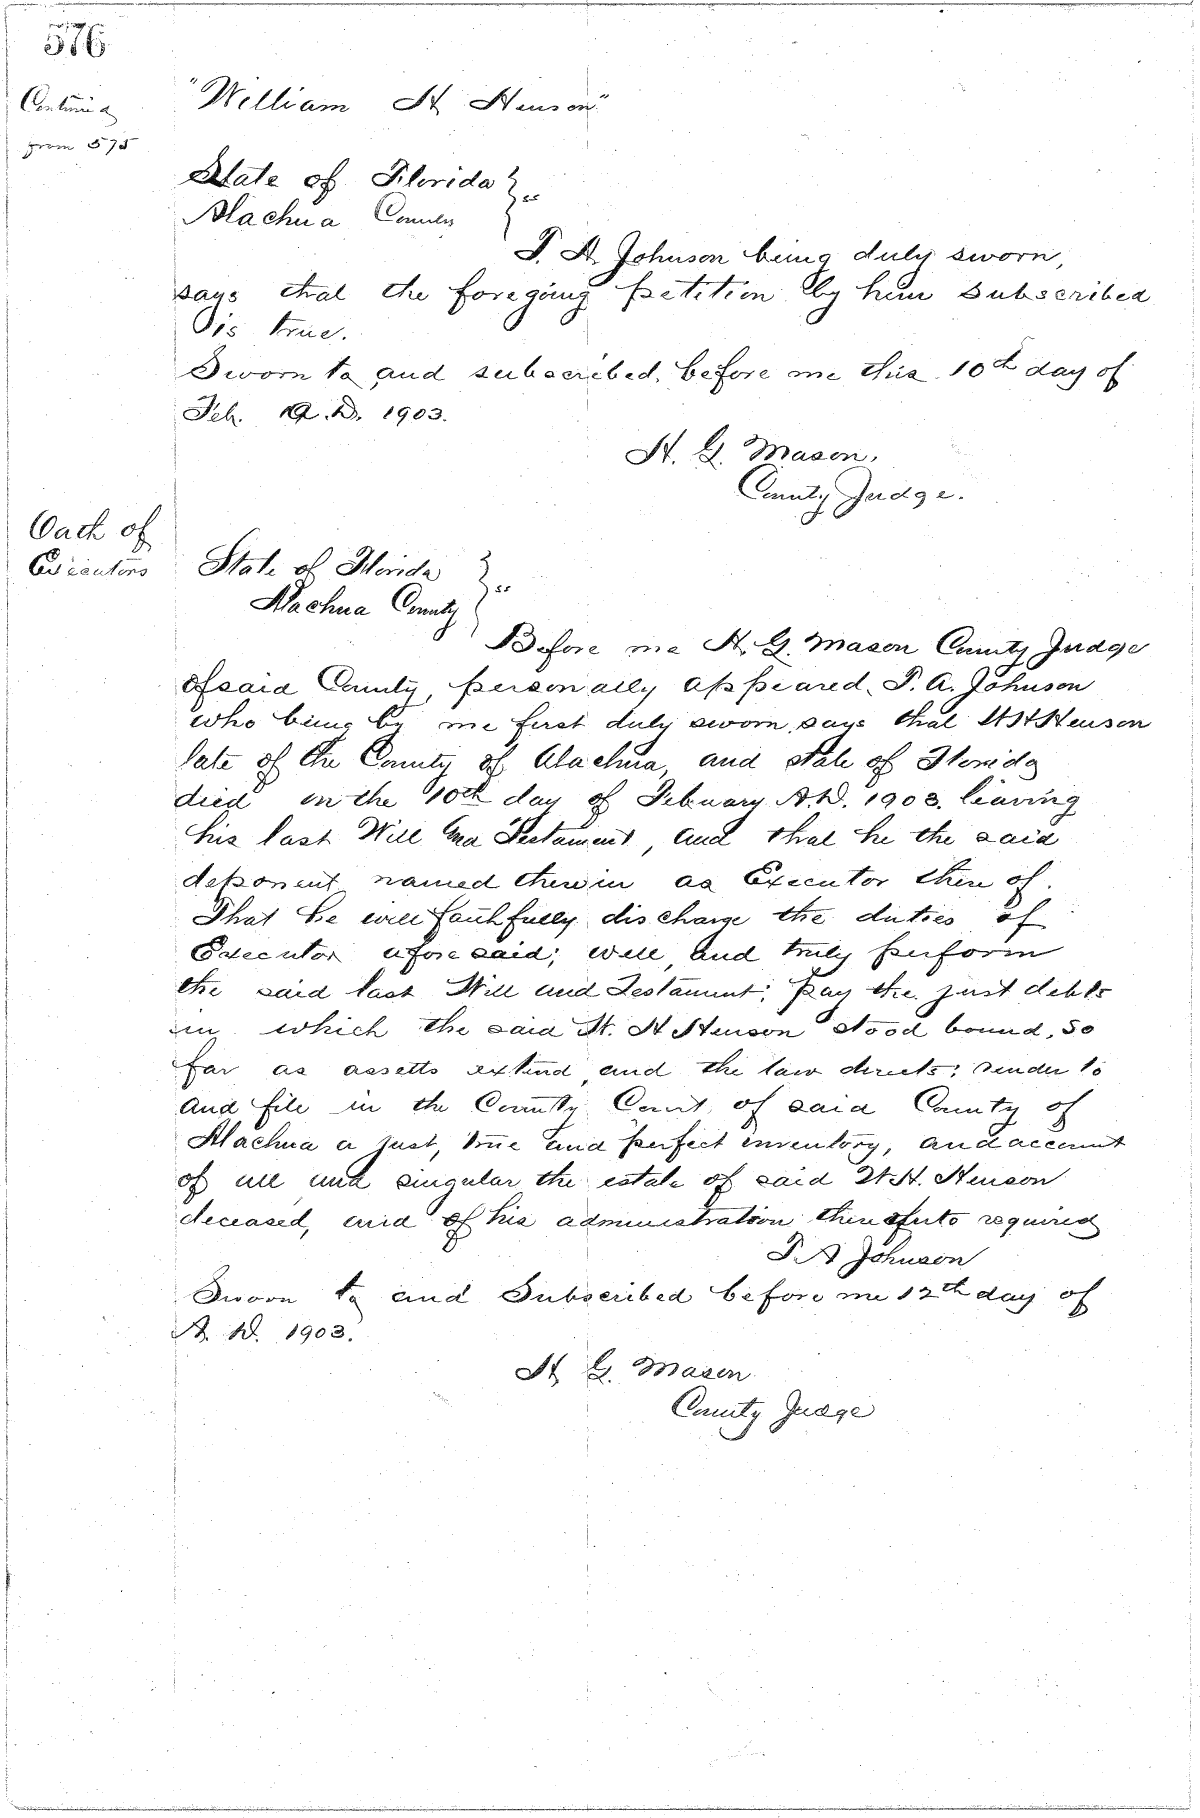 576
Continued
from 575
"William H Henson"
State of Florida } ss
Alachua County
T. A. Johnson being duly sworn,
says that the foregoing petition by him subscribed
is true.
Sworn to and subscribed, before me this 10th day of
Feb. A.D. 1903.
H. G. Mason,
County Judge.
Oath of
Executors
State of Florida } ss
Alachua County
Before me H. G. Mason County Judge
of said County, personally appeared, T. A. Johnson
who being by me first duly sworn, says that W H Henson
late of the County of Alachua, and state of Florida
died on the 10th day of Febuary A.D. 1903. leaving
his last Will and Testament, and that he the said
deponent named therein as Executor there of.
That he will faithfully discharge the duties of
Executor afore said; well, and truly perform
the said last Will and Testament; Pay the just debts
in which the said W. H Henson stood bound, so
far as assetts extend, and the law directs; render to
and file in the County Court, of said County of
Alachua a just, true and perfect inventory, and account
of all and singular the estate of said W. H. Henson
deceased, and of his administration required
T. A Johnson
Sworn to and Subscribed before me 12th day of
A. D. 1903.
H G. Mason
County Judge